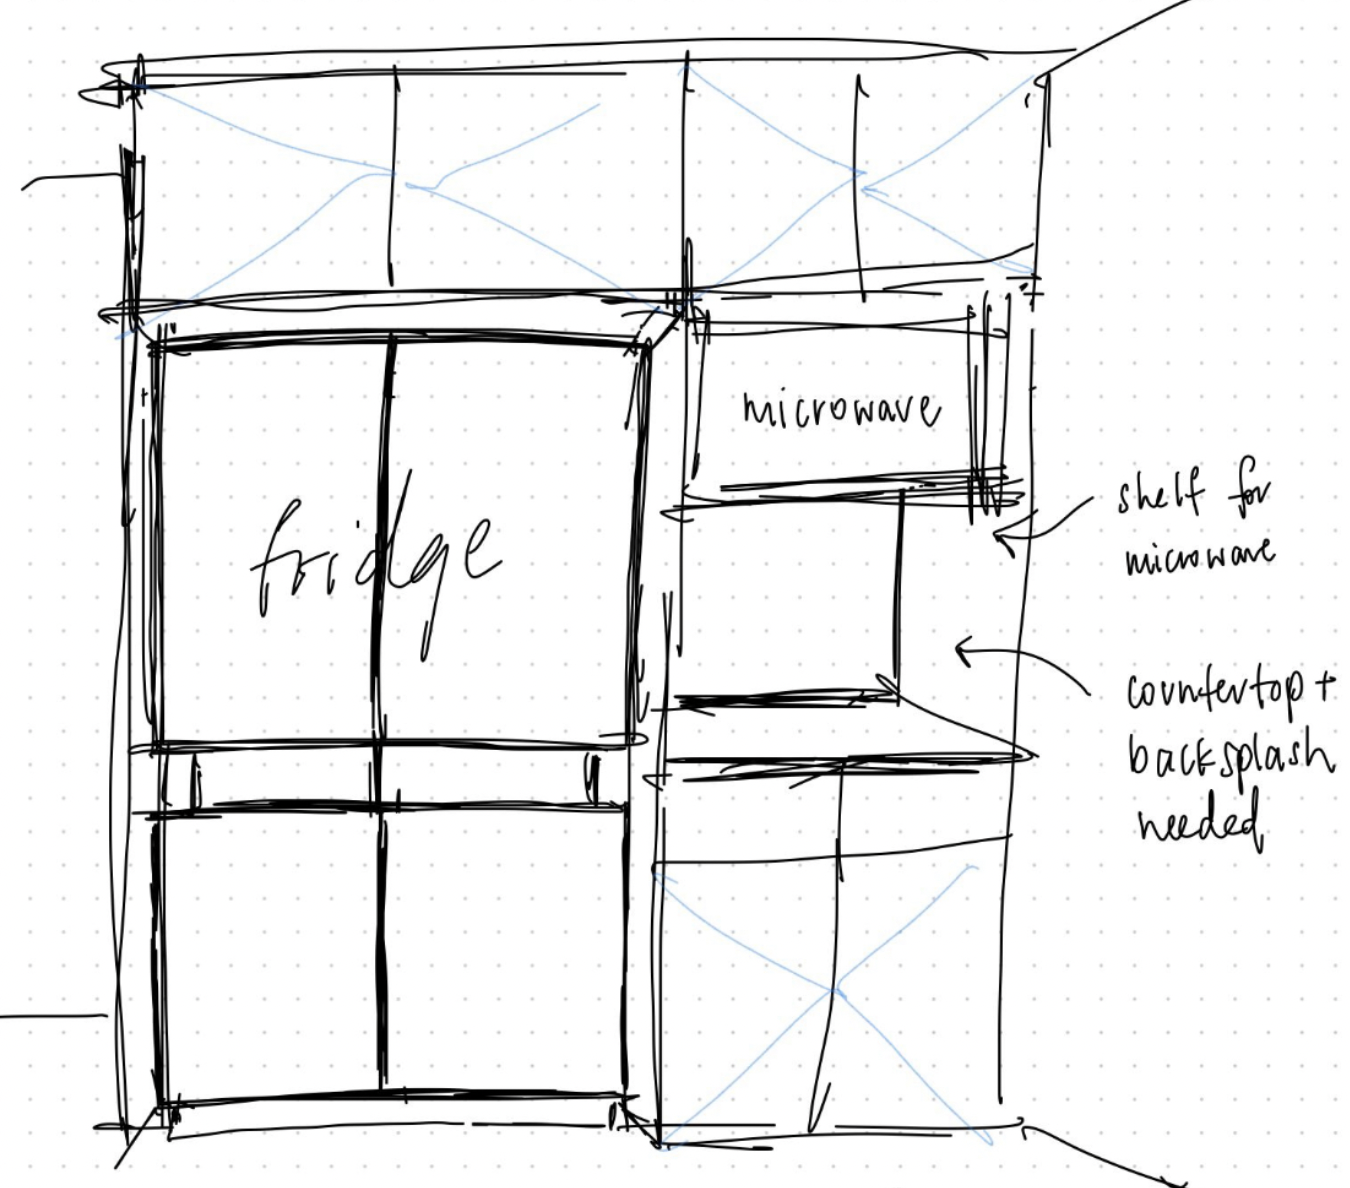 microwave
fridge
shelf for
microwave
countertop +
backsplash
needed